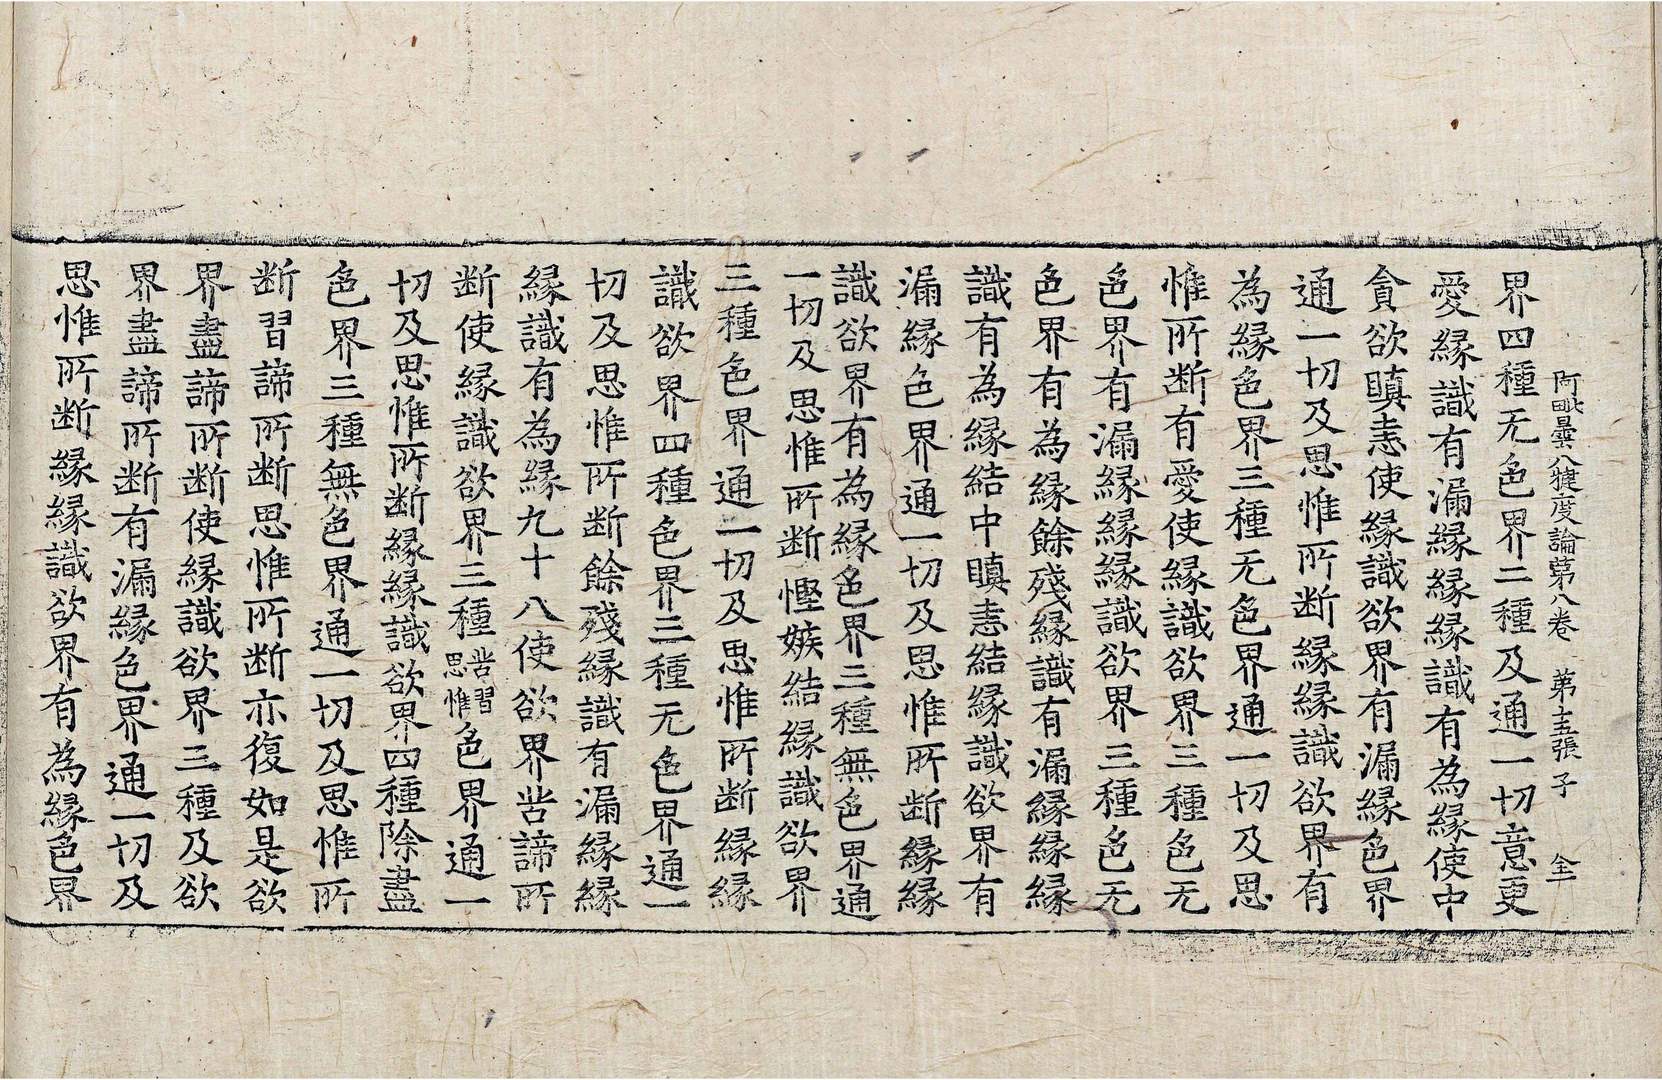 阿毗曇八犍度論第八卷 第十五張 子
界四種无色界二種及通一切意更
愛緣識有漏緣緣緣識有為緣使中
貪欲瞋恚使緣識欲界有漏緣色界
通一切及思惟所断緣緣識欲界有
為緣色界三種无色界通一切及思
惟所断有愛使緣識欲界三種色无
色界有漏緣緣緣識欲界三種色无
色界有為緣餘殘緣識有漏緣緣緣
識有為緣結中瞋恚結緣識欲界有
漏緣色界通一切及思惟所断緣緣
識欲界有為緣色界三種無色界通
一切及思惟所断慳嫉結緣識欲界
三種色界通一切及思惟所断緣緣
識欲界四種色界三種无色界通一
切及思惟所断餘殘緣識有漏緣緣
緣識有為緣九十八使欲界苦諦所
断使緣識欲界三種苦習思惟色界通一
切及思惟所断緣緣識欲界四種除盡
色界三種無色界通一切及思惟所
断習諦所断思惟所断亦復如是欲
界盡諦所断使緣識欲界三種及欲
界盡諦所断有漏緣色界通一切及
思惟所断緣緣識欲界有為緣色界